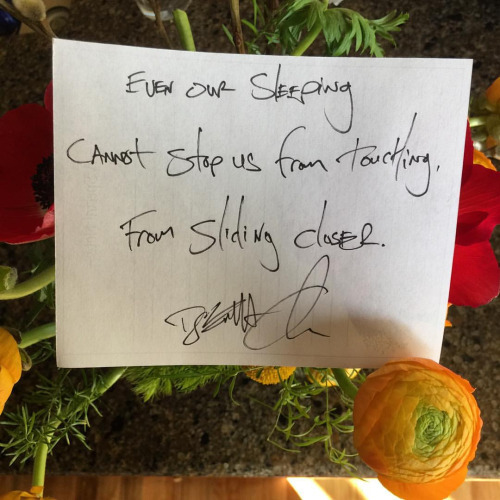 EVEN OUR SLEEPING
CANNOT STOP US from TOUCHING,
From SLIDING CLOSER.